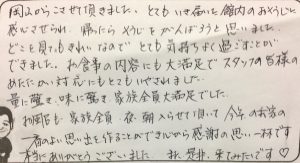 岡山からこさせて頂きました。とてもいき届いた館内のおそうじに
感心させられ、帰ったらそうじをがんばろうと思いました。
どこを見てもきれいなので とても気持ちよく過ごすことが
できました。お食事の内容にも大満足で スタッフの皆様の
あたたかい対応にもとてもいやされました。
量に驚き、味に驚き、家族全員大満足でした。
お風呂も、家族全員 夜、朝入らせて頂いて 今年のお家の
一番のよい思い出を作ることができたから感謝の思い一杯です
本当にありがとうございました。また、是非、来てみたいです♡